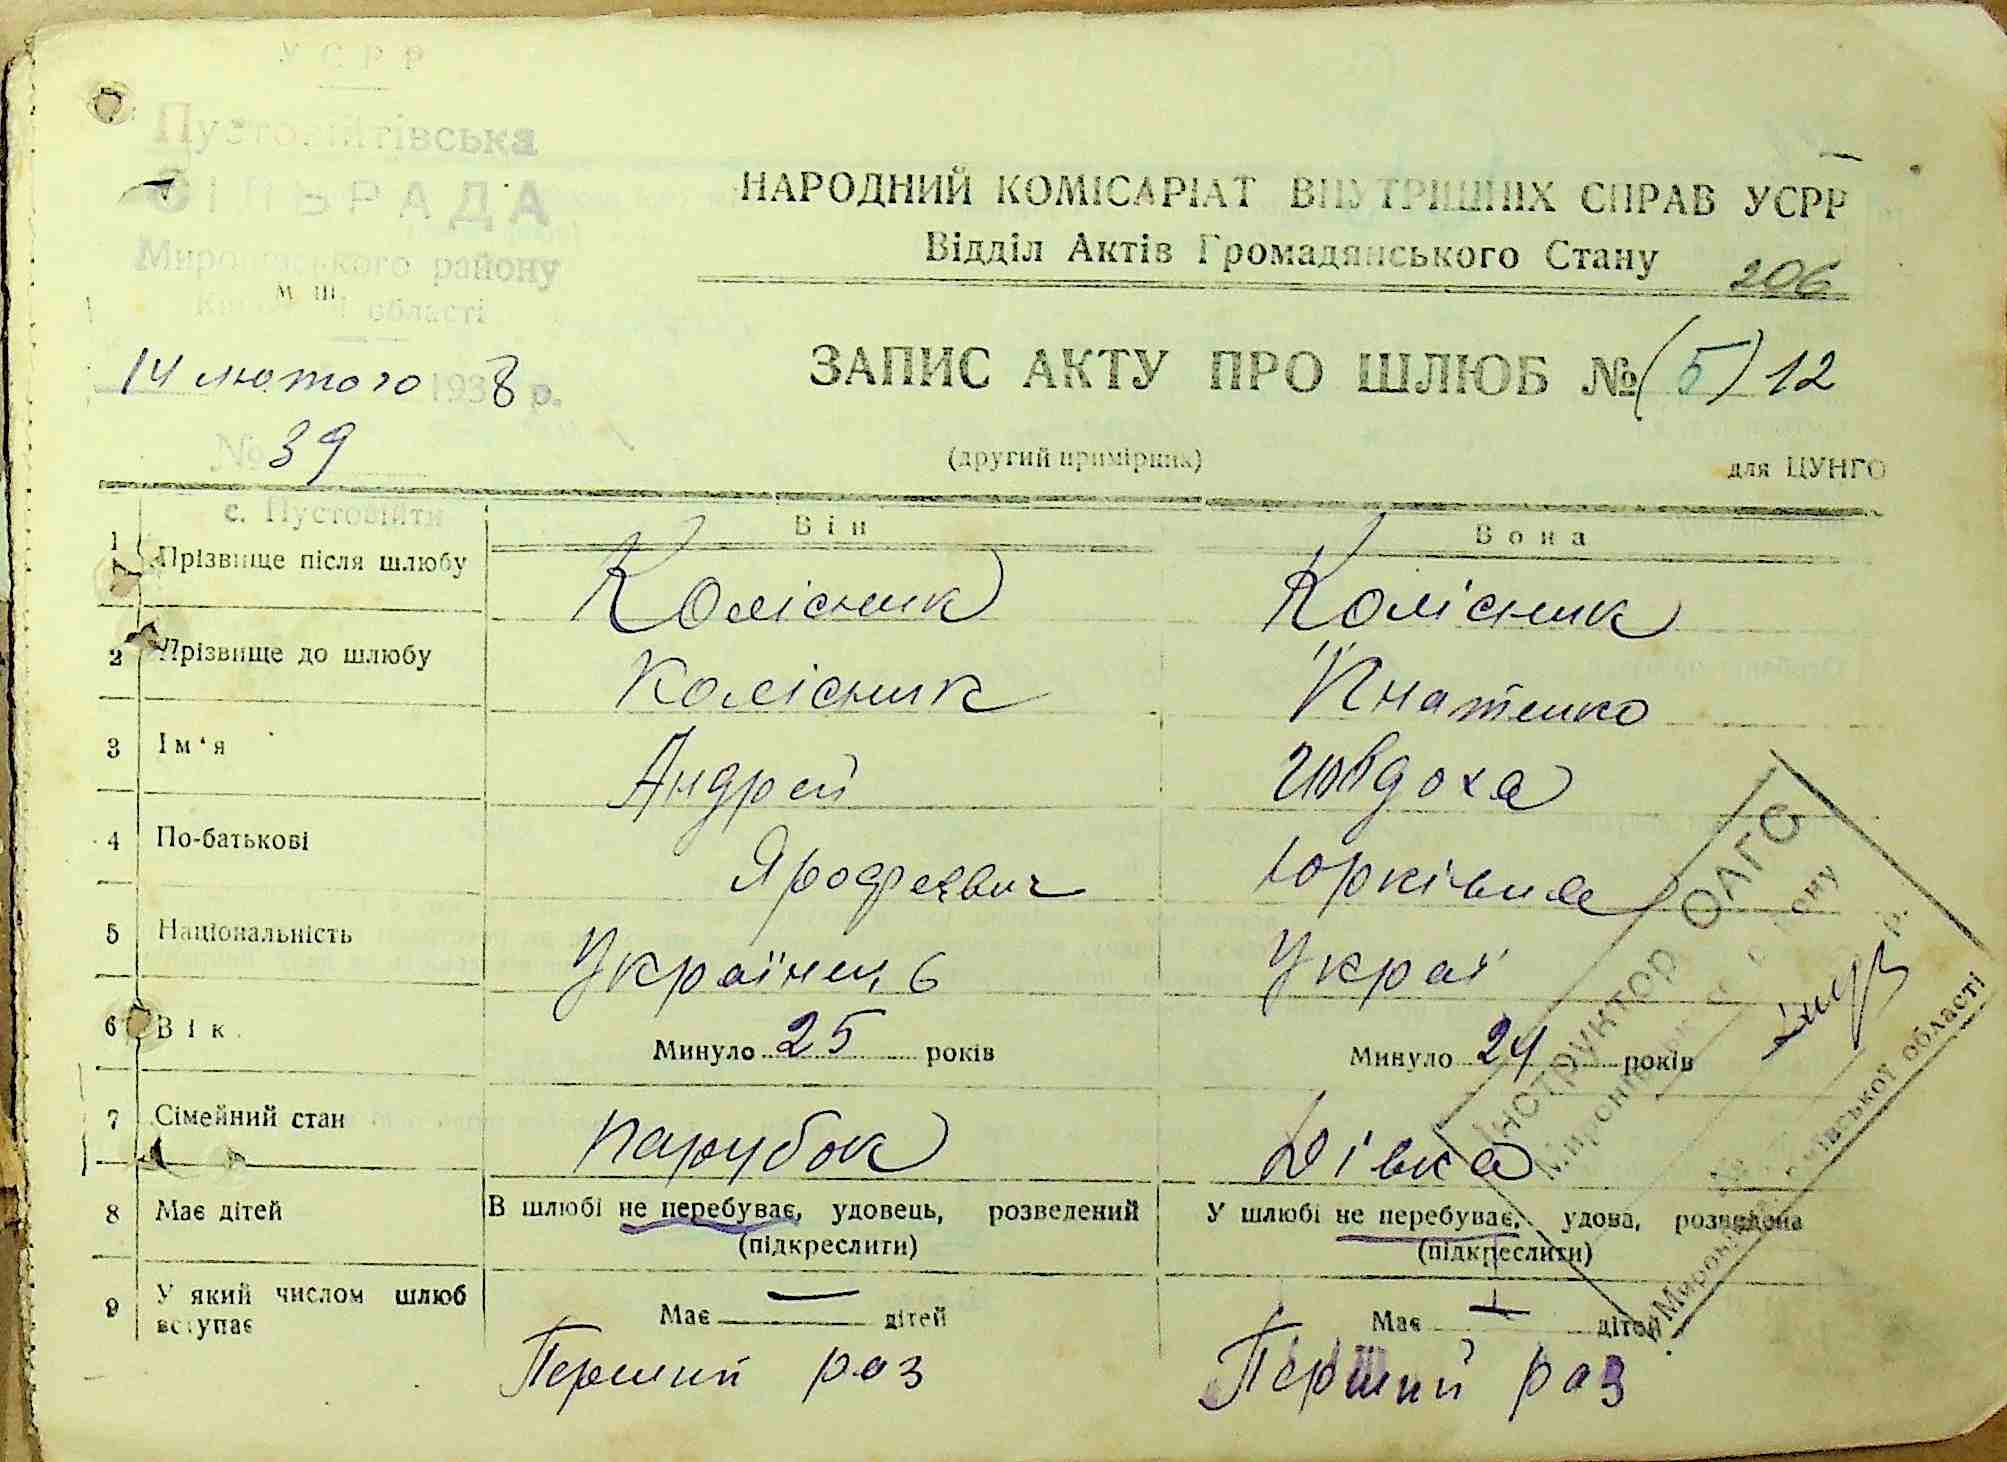 УСРР
Пустовійтівська
СІЛЬРАДА
Миронівського району
Київської області
14 лютого 1938 р.
№ 39
с. Пустовійти
НАРОДНИЙ КОМІСАРІАТ ВНУТРІШНІХ СПРАВ УСРР
Відділ Актів Громадянського Стану
206
ЗАПИС АКТУ ПРО ШЛЮБ № (5) 12
(другий примірник)
для ЦУНГО
Він Вона
1 Прізвище після шлюбу Колісник Колісник
2 Прізвище до шлюбу Колісник Кнатенко
3 Ім'я Андрей Ювдоха
4 По-батькові Юрківна
5 Національність Українець Украї
6 Вік Минуло 25 років Минуло 24 років
7 Сімейний стан парубок Дівка
8 Має дітей В шлюбі не перебуває, удовець, розведений У шлюбі не перебуває, удова, розведена
(підкреслити) (підкреслити)
9 У який числом шлюб вступає Має — дітей Має — дітей
Перший раз Перший раз
Інструктор ОАГС
Миронівської Київської області